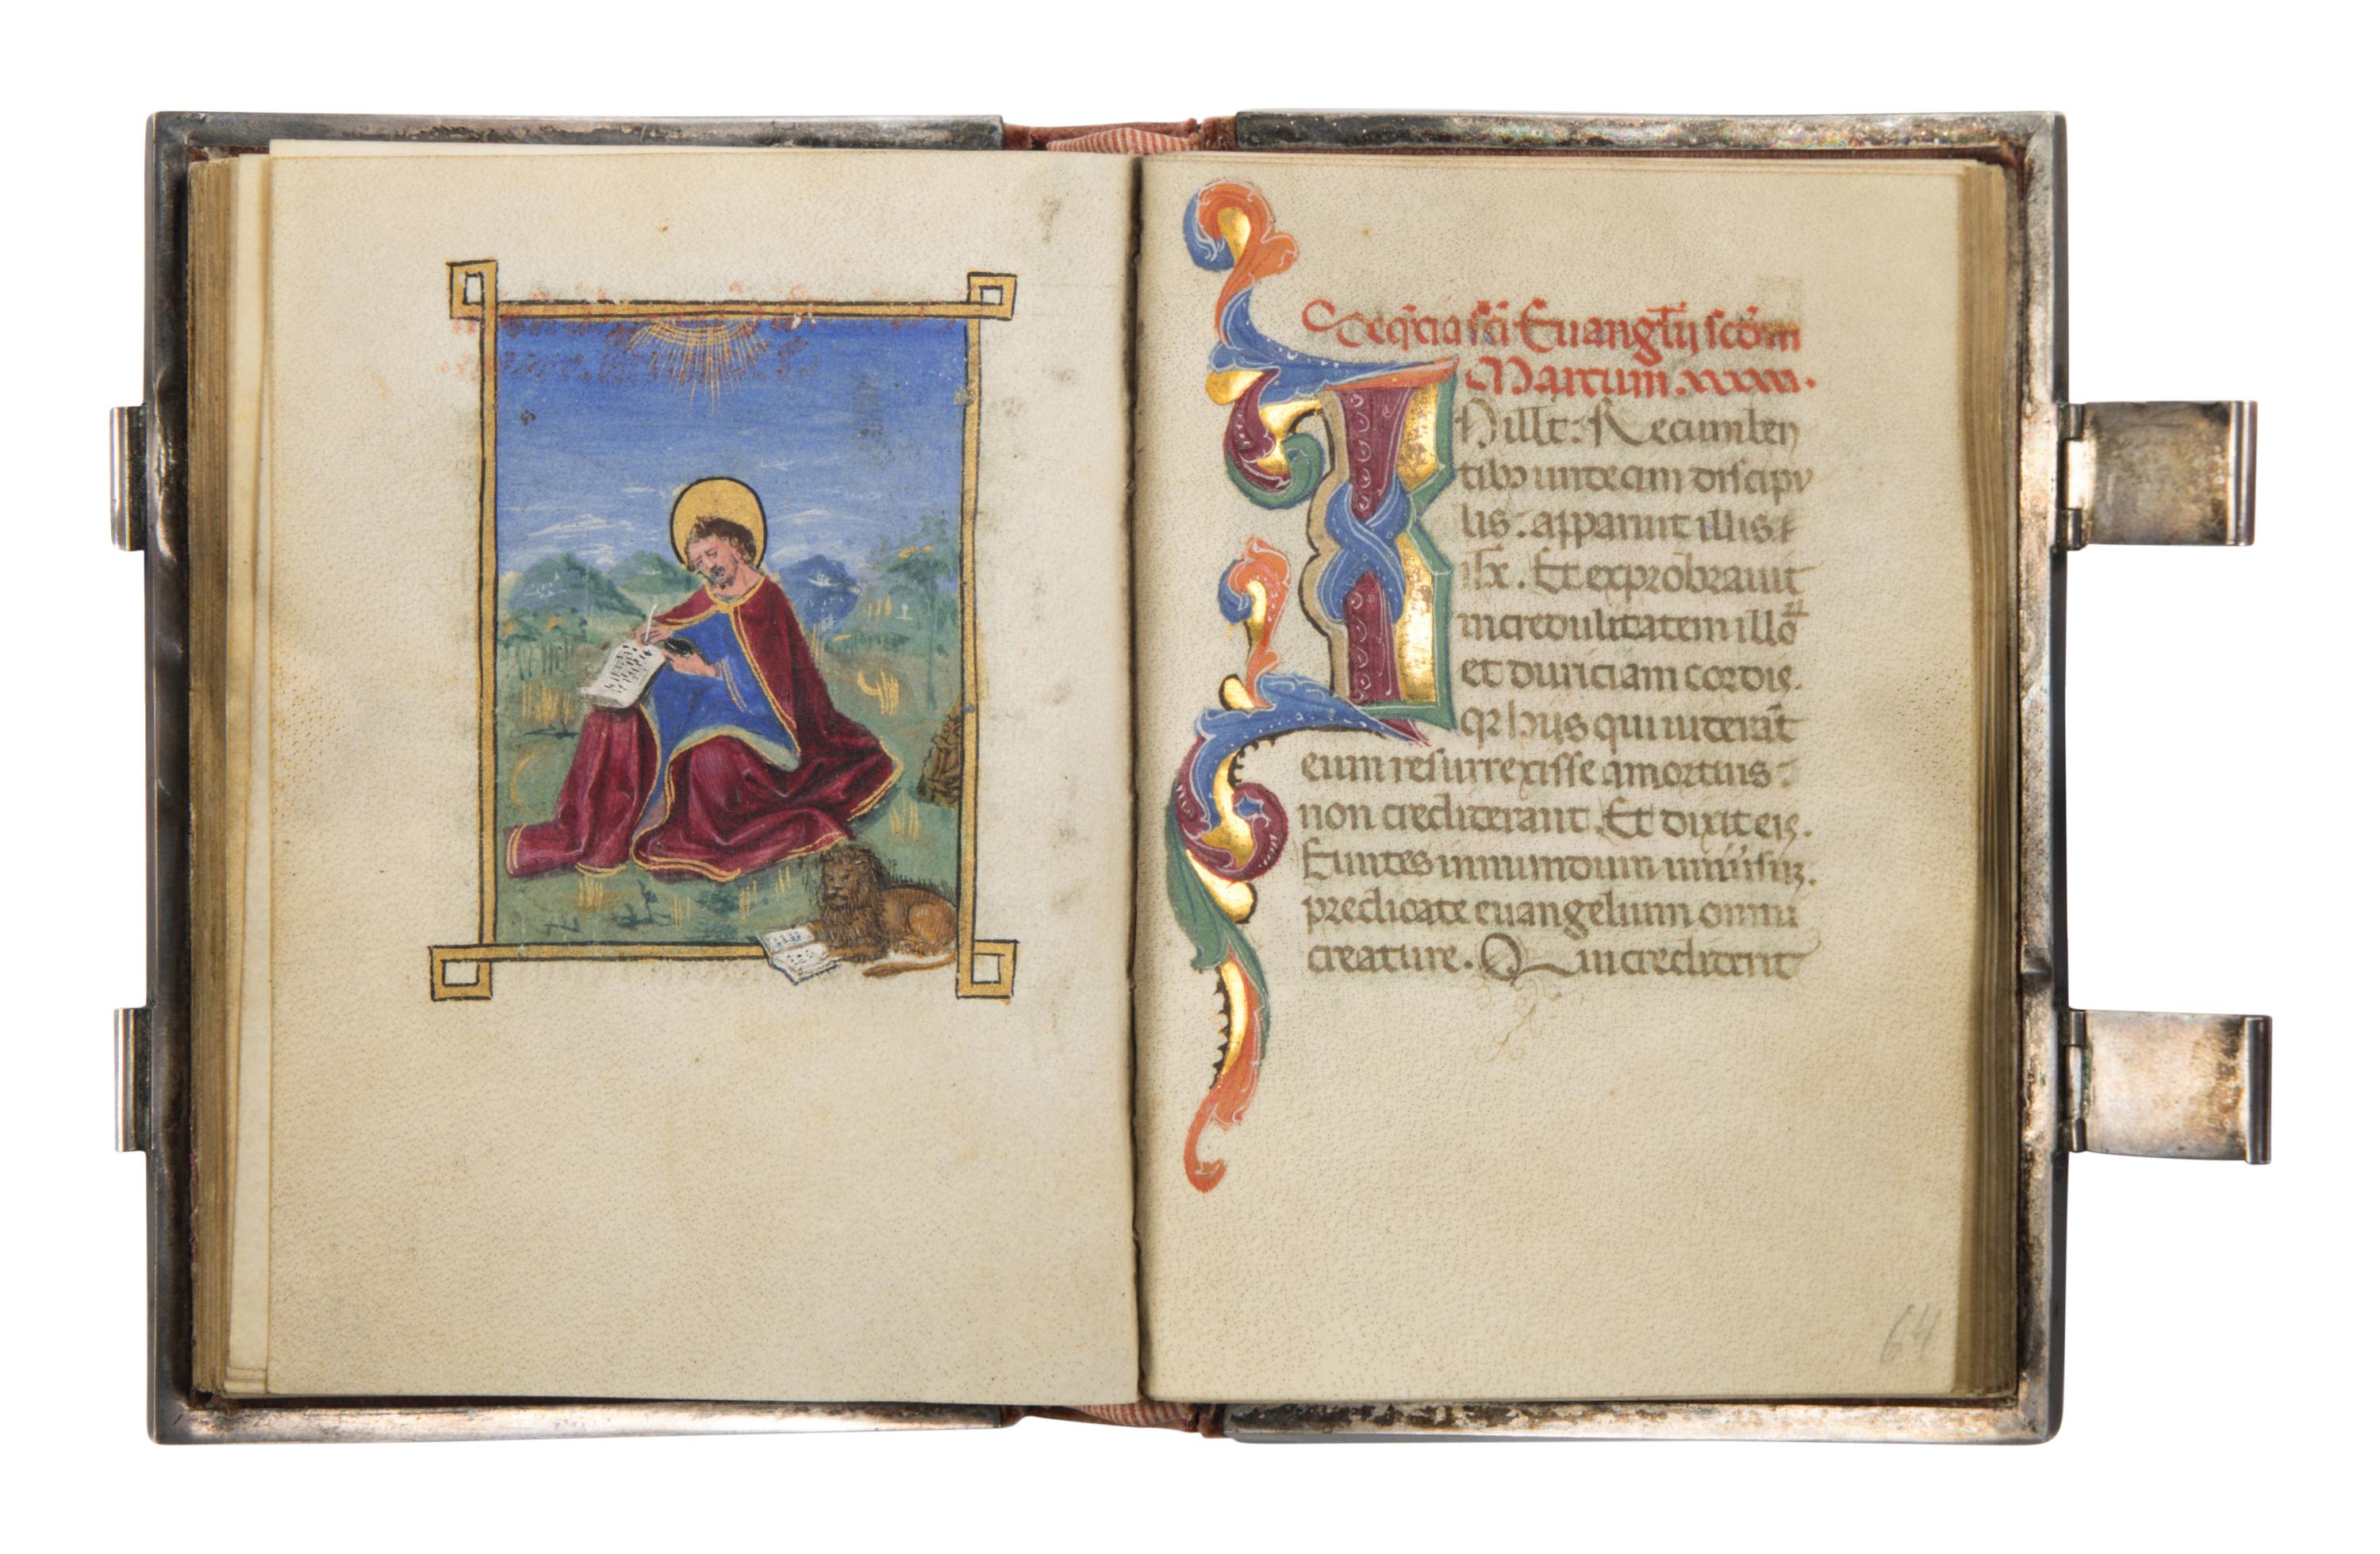 Seq̄cia sc̄i Euangl̄ij scd̄m
Marcum.
IN illt: Recumben
tibꝰ undecim discipu
lis: apparuit illis
ihs̄. Et exprobrauit
incredulitatem illoꝝ
et duriciam cordis.
qꝛ hijs qui uiderāt
eum resurrexisse amortuis:
non crediderant. Et dixit eis.
Euntes inmundum
predicate euangelium omni
creature. Qui crediderit
64